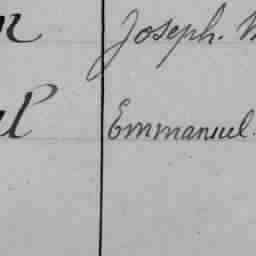 Joseph.
Emmanuel.